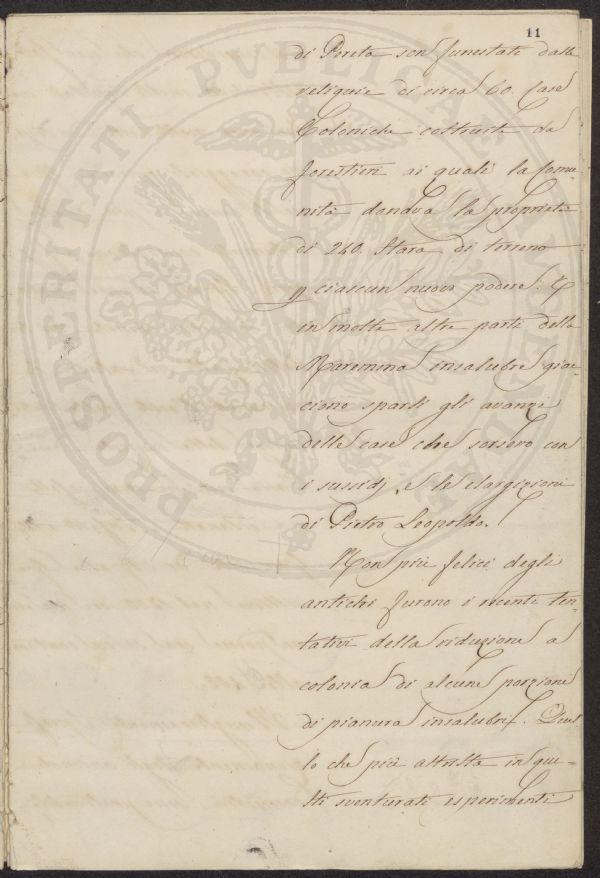 11
di Pereta son funestate dalle
reliquie di circa 60. Case
Coloniche costruite da
forestieri ai quali la Comu-
nità donava la proprietà
di 240. Stara di terreno
p ciascun nuovo podere. E
in molte altre parti della
Maremma insalubre giac-
ciono sparsi gli avanzi
delle case che sorsero con
i sussidj, e le elargizioni
di Pietro Leopoldo.
Non più felici degli
antichi furono i recenti ten-
tativi della riduzione a
colonia di alcune porzioni
di pianura insalubre. Quel
lo che più attrista in que-
sti sventurati esperimenti
PROSPERITATI PVBLICAE AVGENDAE